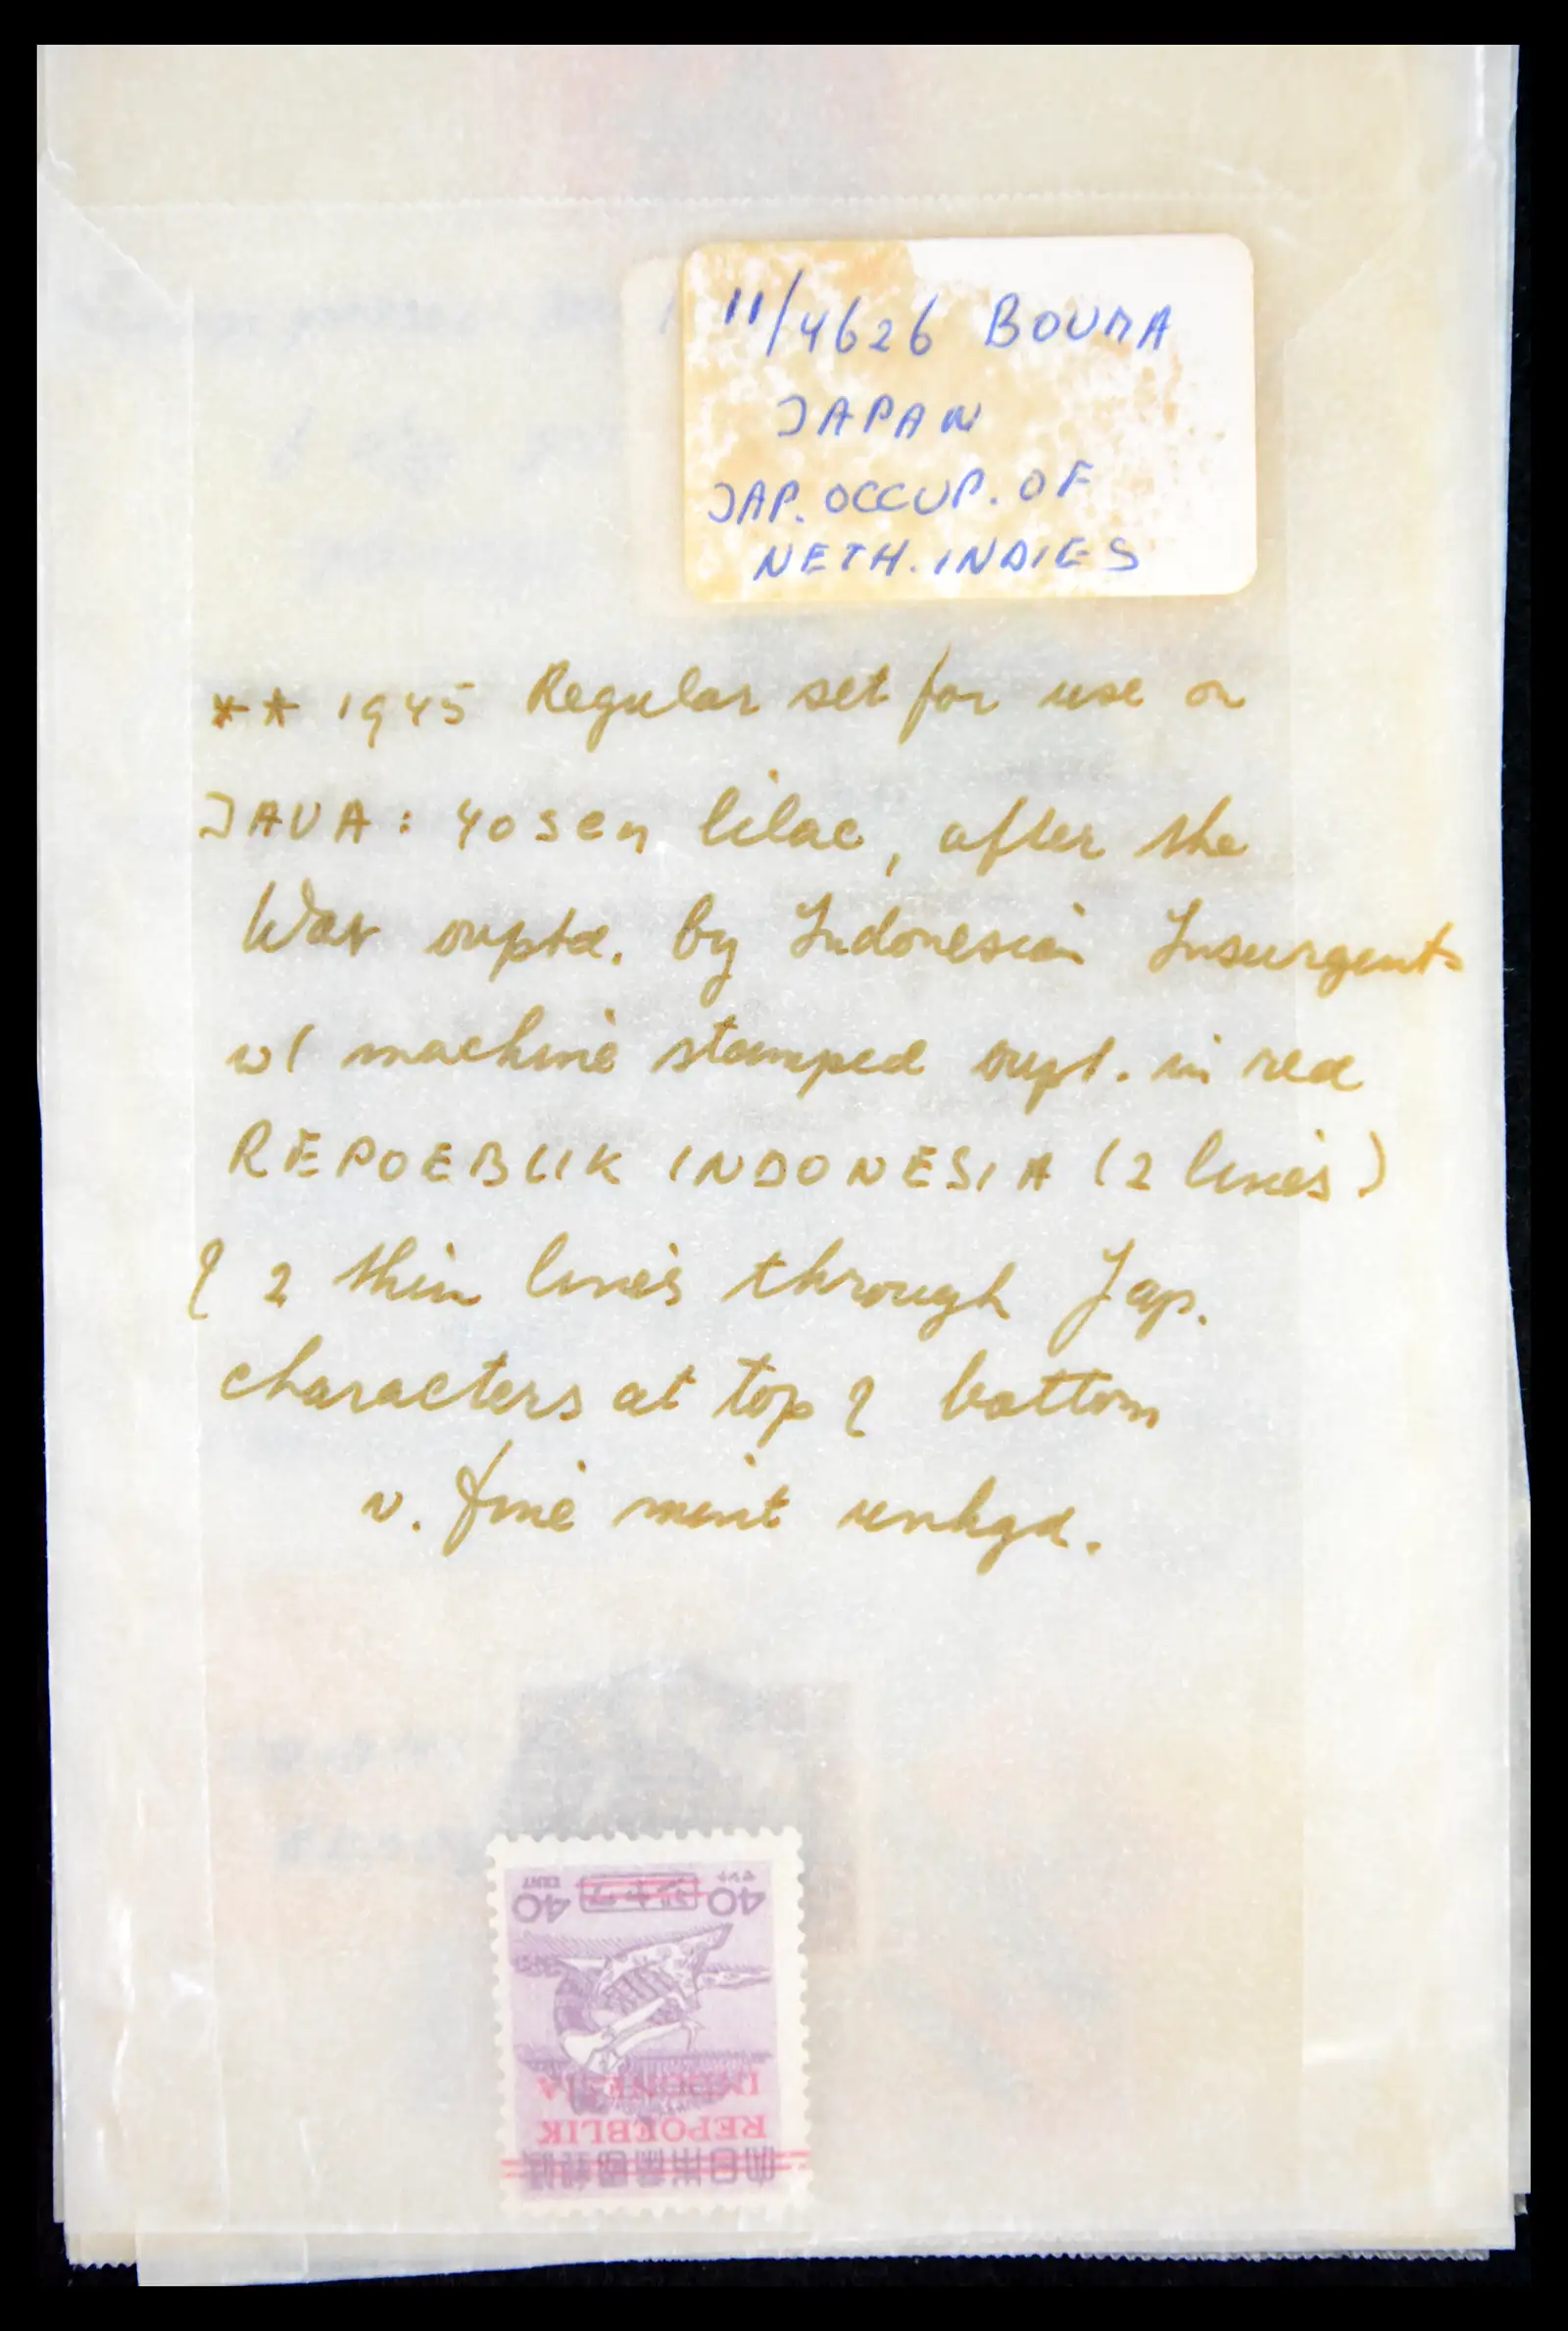 11/4626 BOUMA
JAPAN
JAP. OCCUP. OF
NETH. INDIES
** 1945 Regular set for use on
JAVA: 40 sen lilac, after the
War ovptd. by Indonesian Insurgents
w/ machine stamped ovpt. in red
REPOEBLIK INDONESIA (2 lines)
& 2 thin lines through Jap.
characters at top & bottom
v. fine mint unhgd.
大日本帝國郵便
REPOEBLIK
INDONESIA
40 ジャワ 40
セント SENT